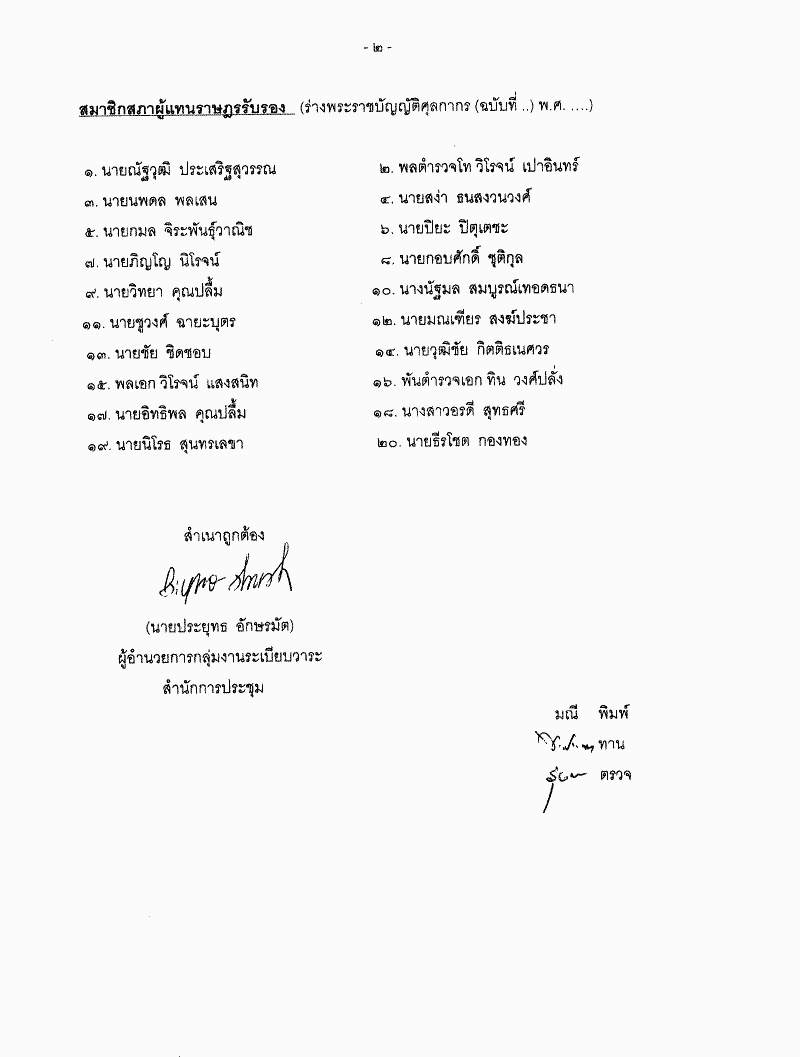 - ๒ -
สมาชิกสภาผู้แทนราษฎรรับรอง (ร่างพระราชบัญญัติศุลกากร (ฉบับที่ ..) พ.ศ. ....)
๑. นายณัฐวุฒิ ประเสริฐสุวรรณ ๒. พลตำรวจโท วิโรจน์ เปาอินทร์
๓. นายนพดล พลเสน ๔. นายสง่า ธนสงวนวงศ์
๕. นายกมล จิระพันธุ์วาณิช ๖. นายปิยะ ปิตุเตชะ
๗. นายภิญโญ นิโรจน์ ๘. นายกอบศักดิ์ ชุติกุล
๙. นายวิทยา คุณปลื้ม ๑๐. นางนัฐมล สมบูรณ์เทอดธนา
๑๑. นายชูวงศ์ ฉายะบุตร ๑๒. นายมณเฑียร สงฆ์ประชา
๑๓. นายชัย ชิดชอบ ๑๔. นายวุฒิชัย กิตติธเนศวร
๑๕. พลเอก วิโรจน์ แสงสนิท ๑๖. พันตำรวจเอก ทิน วงศ์ปลั่ง
๑๗. นายอิทธิพล คุณปลื้ม ๑๘. นางสาวอรดี สุทธศรี
๑๙. นายนิโรธ สุนทรเลขา ๒๐. นายธีรโชต กองทอง
สำเนาถูกต้อง
(นายประยุทธ อักษรมัต)
ผู้อำนวยการกลุ่มงานระเบียบวาระ
สำนักการประชุม
มณี พิมพ์
ทาน
ตรวจ